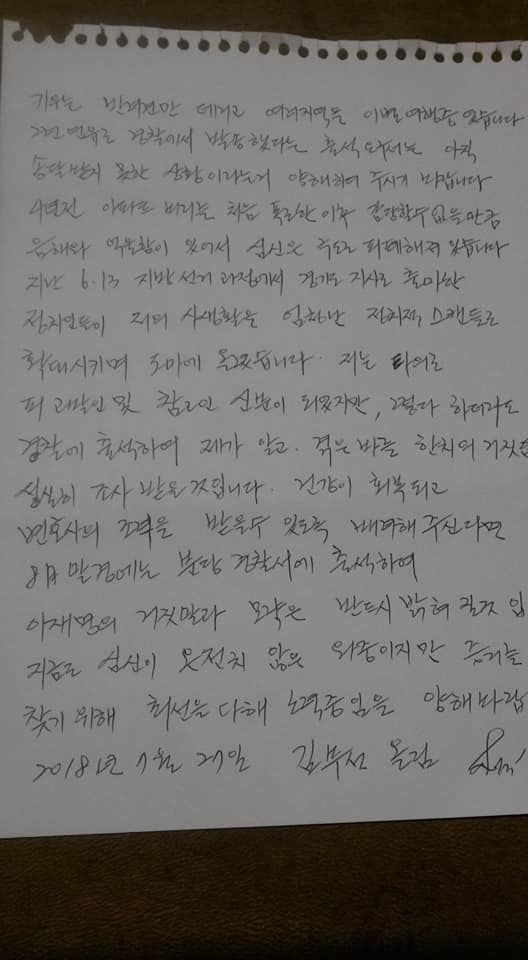 키우는 반려견만 데리고 여러지역을 이별여행중 있습니다
그런 연유로 경찰에서 발송했다는 출석 요구서는 아직
송달받지 못한 상황이라는거 양해하여 주시기 바랍니다
4년전 아파트 비리를 처음 폭로한 이후 감당할수 없을만큼
음해와 억울함이 있어서 심신은 극도로 피폐해져 있습니다
지난 6.13 지방선거 과정에서 경기도 지사로 출마한
정치인들이 저의 사생활을 엄청난 정치적 스캔들로
확대시키며 도마에 올렸습니다. 저는 타의로
피고발인 및 참고인 신분이 되었지만, 그렇다 하더라도
경찰에 출석하여 제가 알고. 겪은 바를 한치의 거짓없
성실히 조사 받을 것입니다. 건강이 회복되고
변호사의 조력을 받을수 있도록 배려해 주신다면
8月 말경에는 분당 경찰서에 출석하여
이재명의 거짓말과 모략은 반드시 밝혀 질것 입
지금도 심신이 온전치 않은 와중이지만 증거를
찾기 위해 최선을 다해 노력중임을 양해바랍
2018년 7월 27일 김부선 올림